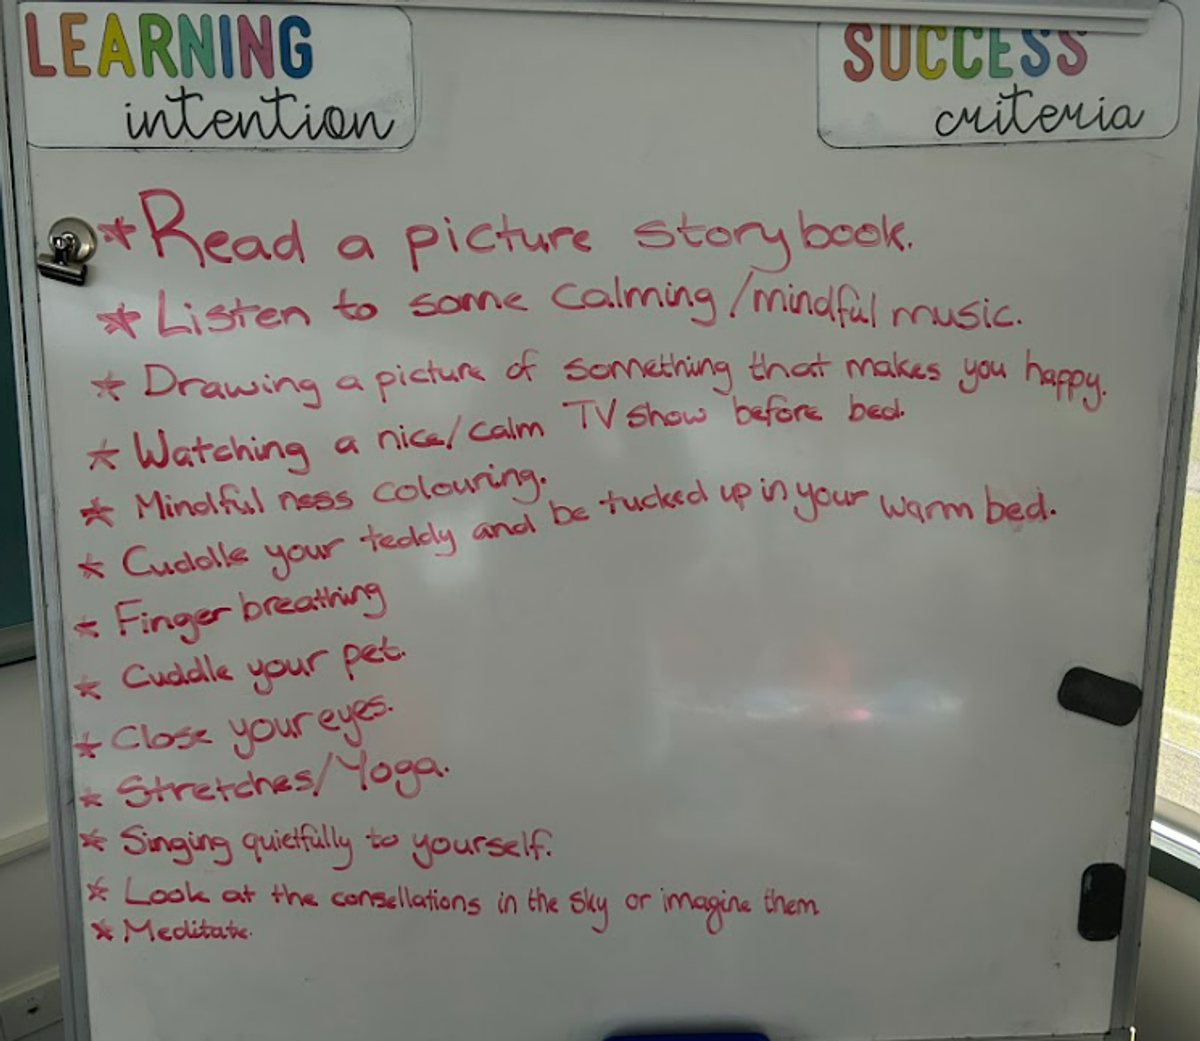 LEARNING
intention
SUCCESS
criteria
* Read a picture story book.
* Listen to some calming/mindful music.
* Drawing a picture of something that makes you happy.
* Watching a nice/calm TV show before bed.
* Mindful ness colouring.
* Cuddle your teddy and be tucked up in your warm bed.
* Finger breathing
* Cuddle your pet.
* Close your eyes.
* Stretches/Yoga.
* Singing quietfully to yourself.
* Look at the consellations in the sky or imagine them
* Meditate.